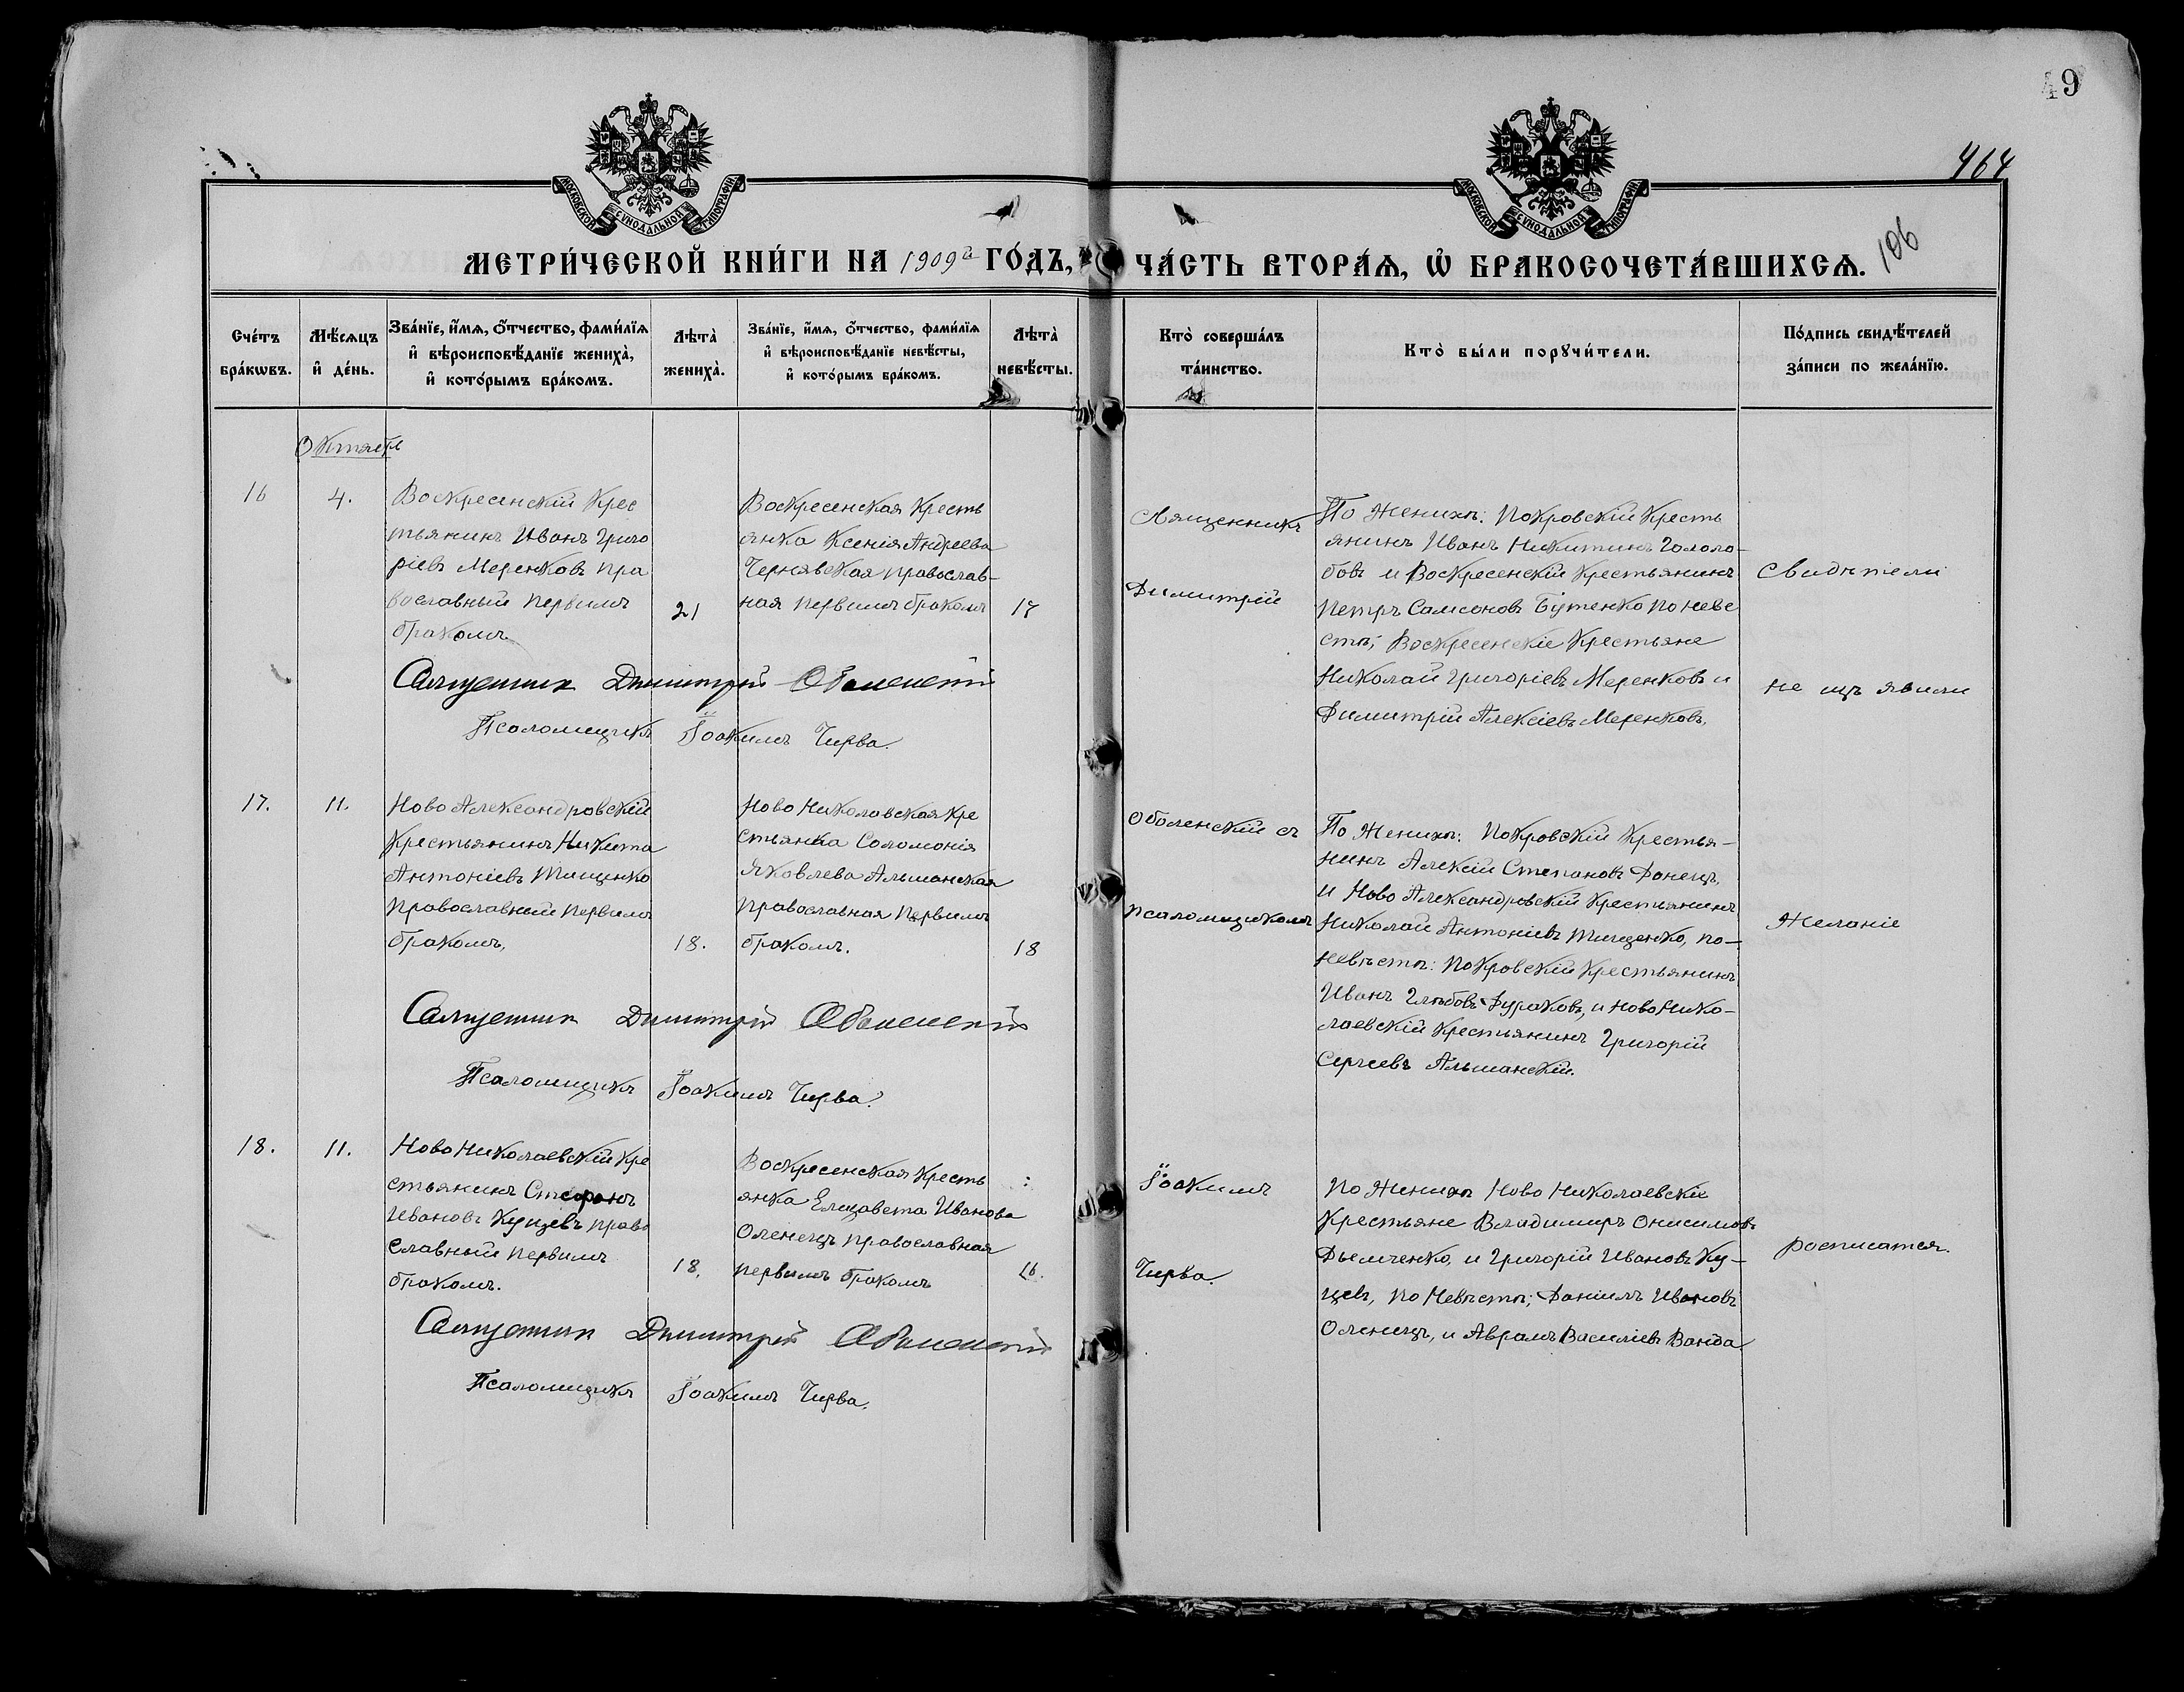 49
464
106
МОСКОВСКОЙ СѴНОДАЛЬНОЙ ТИПОГРАФІИ
МОСКОВСКОЙ СѴНОДАЛЬНОЙ ТИПОГРАФІИ
МЕТРИ́ЧЕСКОЙ КНИ́ГИ НА 1909й ГО́ДЪ,
ЧА́СТЬ ВТОРА́Ѧ, Ѡ҆ БРАКОСОЧЕТА́ВШИХСѦ.
Сче́тъ бра́кѡвъ.
Мѣ́сѧцъ и҆ де́нь.
Зва́нїе, и҆́мѧ, ѻ҆́тчество, фами́лїѧ
и҆ вѣроисповѣ́данїе жениха̀,
и҆ кото́рымъ бра́комъ.
Лѣта̀ жениха̀.
Зва́нїе, и҆́мѧ, ѻ҆́тчество, фами́лїѧ
и҆ вѣроисповѣ́данїе невѣ́сты,
и҆ кото́рымъ бра́комъ.
Лѣта̀ невѣ́сты.
Кто̀ соверша́лъ та́инство.
Кто̀ бы́ли порꙋчи́тели.
По́дпись свидѣ́телей за́писи по жела́нїю.
Октябрь
16
4.
Воскресенскій Крес
тьянинъ Иванъ Григо
ріевъ Меренковъ пра
вославный первымъ
бракомъ
21
Воскресенская Кресть
янка Ксенія Андреева
Чернявская православ-
ная первымъ бракомъ
17
Священникъ
Димитрій
По Женихѣ: Покровскій Кресть
янинъ Иванъ Никитинъ Гололо-
бовъ и Воскресенскій Крестьянинъ
Петръ Самсоновъ Бутенко по неве
стѣ; Воскресенскіе Крестьяне
Николай Григоріевъ Меренковъ и
Димитрій Алексіевъ Меренковъ.
Свидѣтели
не изъявили
Священникъ Димитрій Оболенскій
Псаломщикъ Іоакимъ Чирва.
17.
11.
Ново Александровскій
Крестьянинъ Никита
Антоніевъ Тищенко
православный первымъ
бракомъ,
18.
Ново Николавская Кре
стьянка Соломонія
Яковлева Альшанская
православная первымъ
бракомъ.
18
Оболенскій съ
псаломщикомъ
По Женихѣ: Покровскій Крестья-
нинъ Алексій Степановъ Донецъ,
и Ново Александровскій Крестьянинъ
Николай Антоніевъ Тищенко, по-
невѣстѣ: Покровскій Крестьянинъ
Иванъ Глѣбовъ Дураковъ, и Ново Нико-
лаевскій Крестьянинъ Григорій
Сергеевъ Альшанскій.
Желаніе
Священникъ Димитрій Оболенскій
Псаломщикъ Іоакимъ Чирва.
18.
11.
Ново Николаевскій Кре
стьянинъ Стефанъ
Ивановъ Куцевъ право
славный первымъ
бракомъ.
18.
Воскресенская Кресть
янка Елизавета Иванова
Оленецъ православная
первымъ бракомъ
16.
Іоакимъ
Чирва.
По Женихѣ Ново Николаевскіе
Крестьяне Владимиръ Онисимовъ
Дьемченко, и Григорій Ивановъ Ку-
цевъ, по Невѣстѣ; Даніилъ Ивановъ
Оленецъ, и Аврамъ Василіевъ Ванда
росписатся.
Священникъ Димитрій Оболенскій
Псаломщикъ Іоакимъ Чирва.